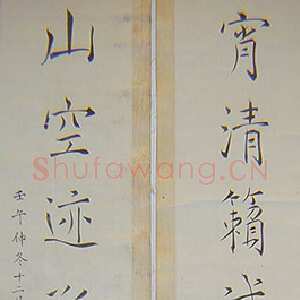 宵清籟
山空迹
壬午佛冬十二
Shufawang.CN